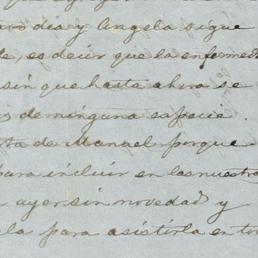 dia y Angela sigue
te, es decir que la enferme
sin que hasta ahora se
s de ninguna especie.
ta de Manuel porque
para incluir en las nuestra
ayer sin novedad y
la para asistirla en to